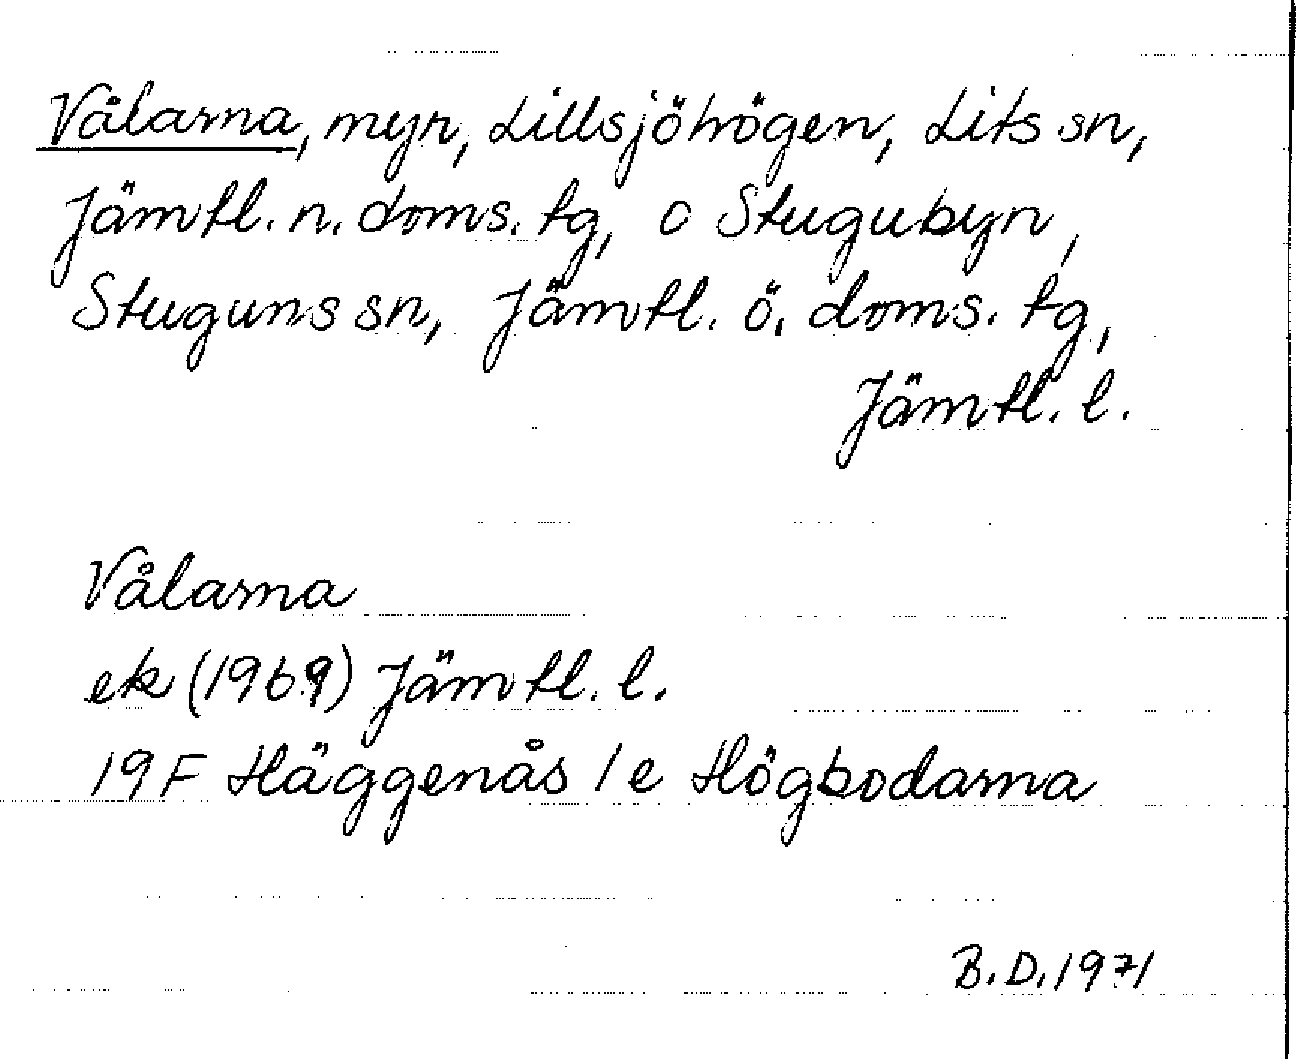 Vålarna, myr, Lillsjöhögen, Lits sn,
Jämtl. n. doms. tg, o Stugubyn,
Stuguns sn, Jämtl. ö. doms. tg,
Jämtl. l.
Vålarna
ek (1969) Jämtl. l.
19F Häggenås 1e Högbodarna
B.D. 1971